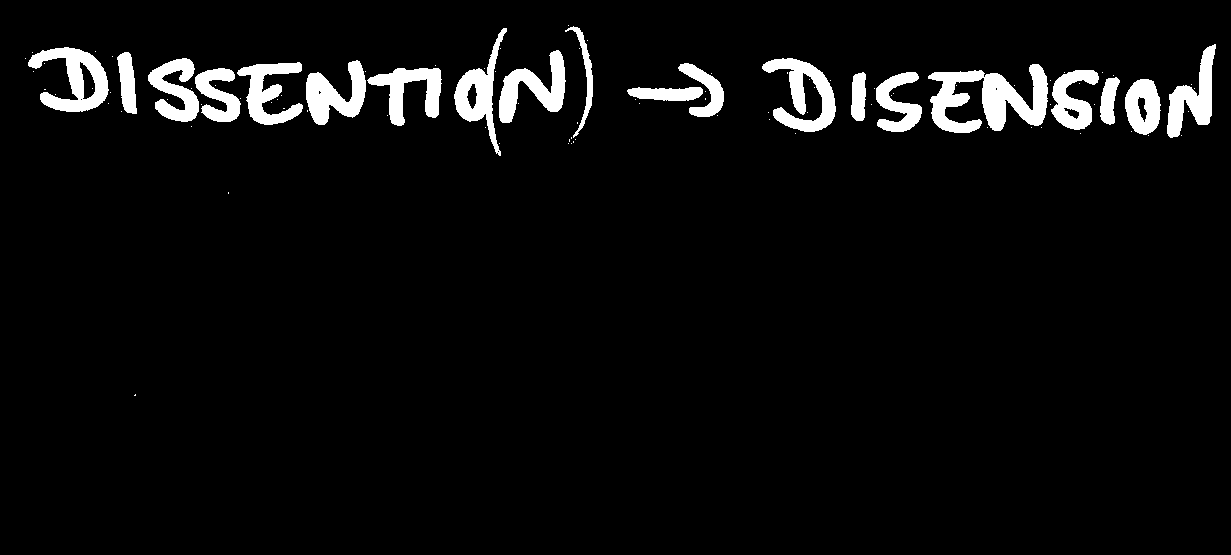 DISSENTIO(N) → DISENSION